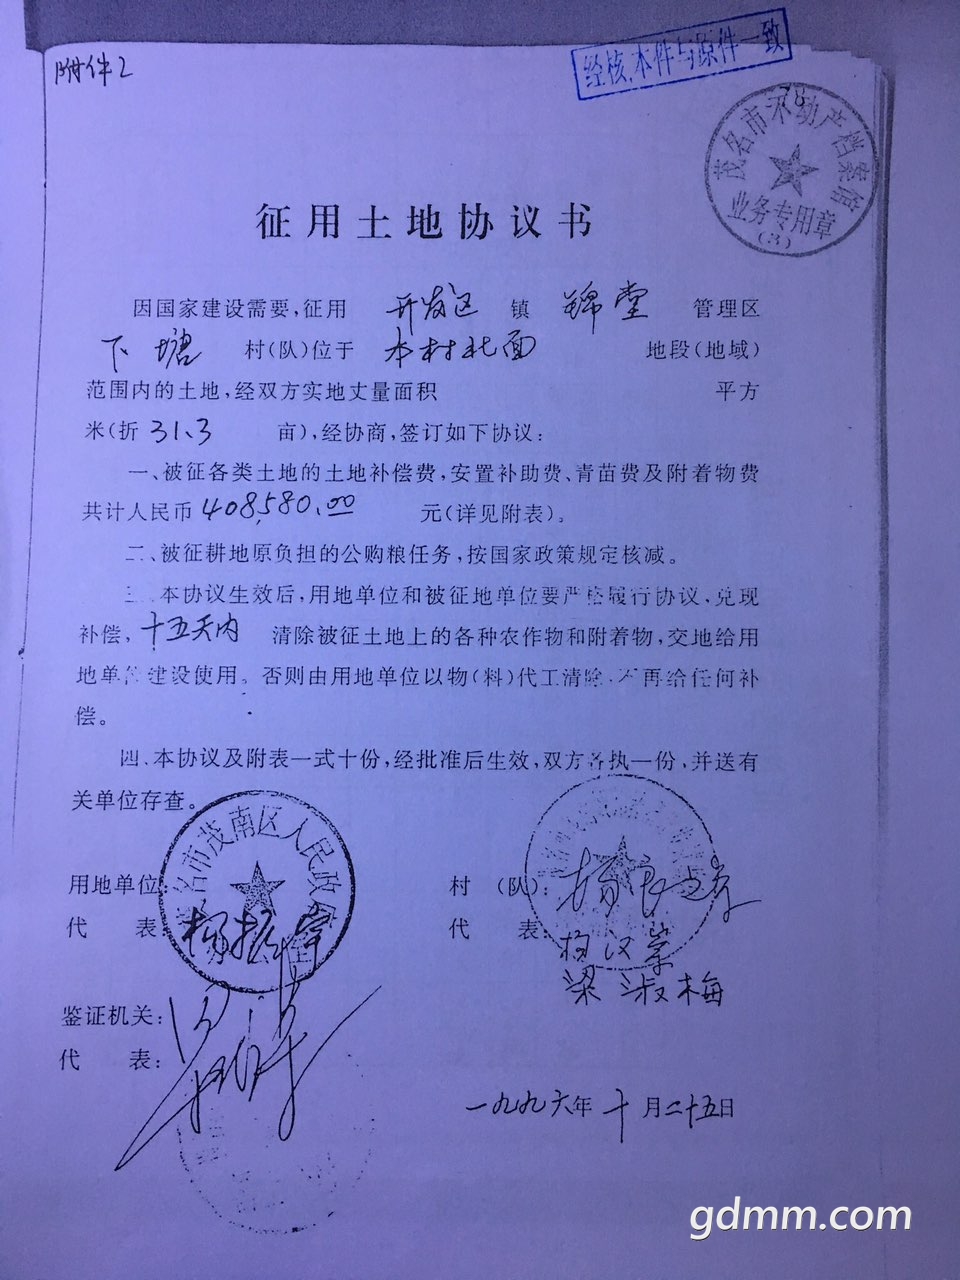 附件2
经核,本件与原件一致
78
茂名市不动产档案馆
业务专用章
(3)
征用土地协议书
因国家建设需要,征用 开发区 镇 锦堂 管理区
下塘 村(队)位于 本村北面 地段(地域)
范围内的土地,经双方实地丈量面积 平方
米(折 31.3 亩),经协商,签订如下协议:
一、被征各类土地的土地补偿费,安置补助费、青苗费及附着物费
共计人民币 408,580.00 元(详见附表)。
二、被征耕地原负担的公购粮任务,按国家政策规定核减。
三、本协议生效后,用地单位和被征地单位要严格履行协议,兑现
补偿, 十五天内 清除被征土地上的各种农作物和附着物,交地给用
地单位建设使用。否则由用地单位以物(料)代工清除,不再给任何补
偿。
四、本协议及附表一式十份,经批准后生效,双方各执一份,并送有
关单位存查。
名市茂南区人民政
用地单位:
村 (队):
代 表: 杨振宰
代 表: 杨汉
梁淑梅
鉴证机关:
代 表:
一九九六年 十 月二十五日
gdmm.com